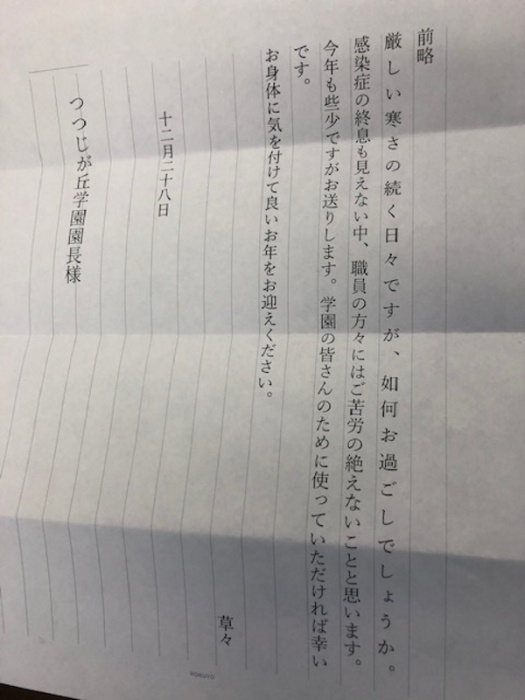 前略
厳しい寒さの続く日々ですが、如何お過ごしでしょうか。
感染症の終息も見えない中、職員の方々にはご苦労の絶えないことと思います。
今年も些少ですがお送りします。学園の皆さんのために使っていただければ幸い
です。
お身体に気を付けて良いお年をお迎えください。
草々
十二月二十八日
つつじが丘学園園長様
KOKUYO